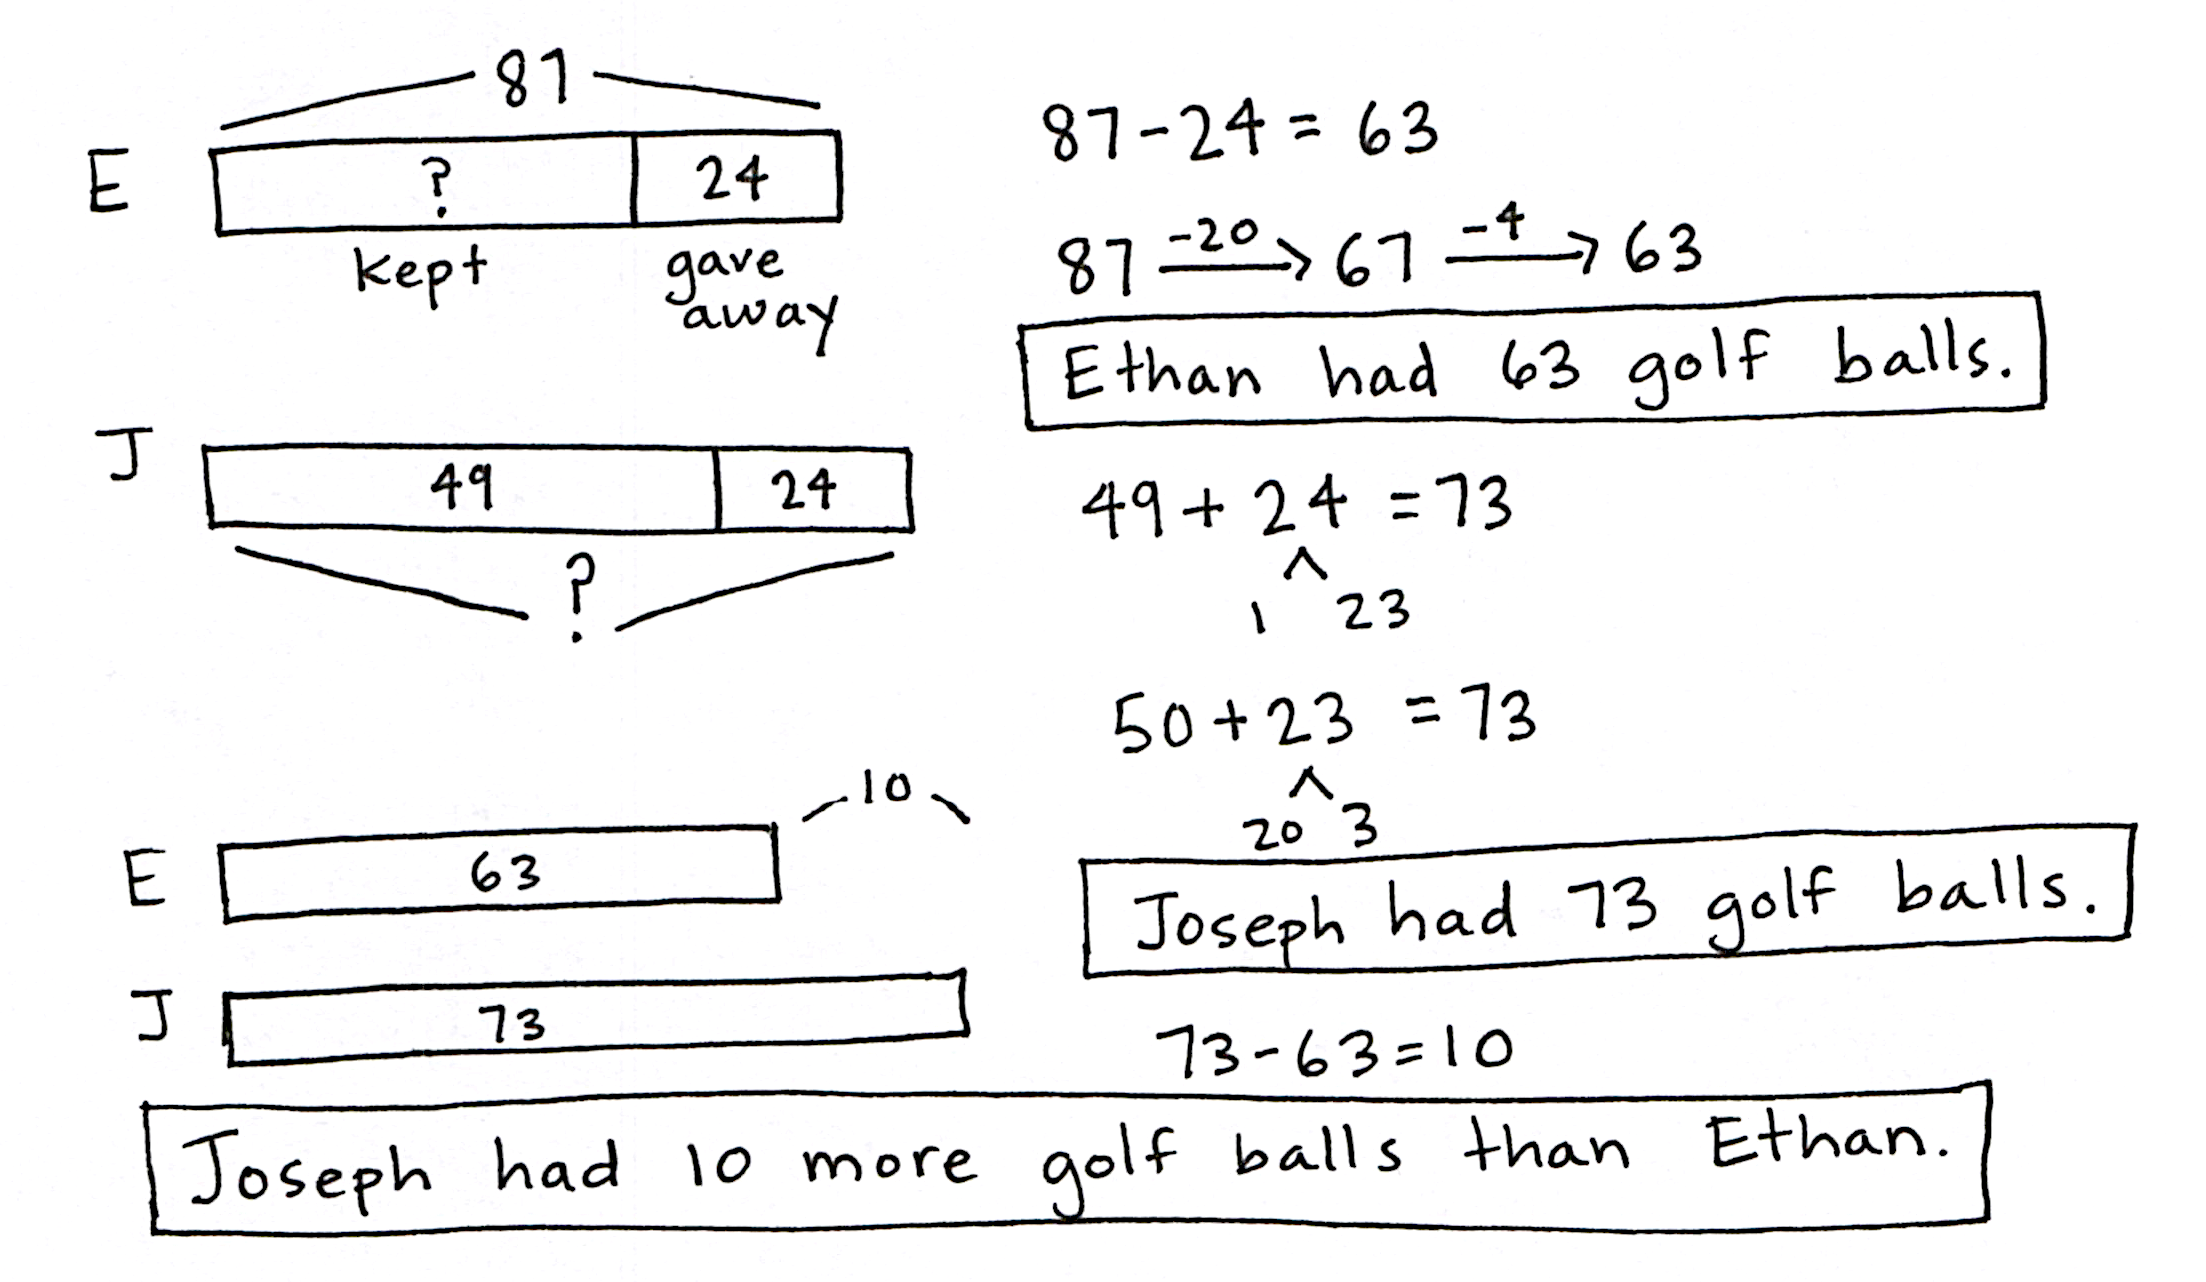 87
E ? 24
kept gave
away
87-24 = 63
87 -20 → 67 -4 → 63
Ethan had 63 golf balls.
J 49 24
?
49 + 24 = 73
1 23
50 + 23 = 73
20 3
Joseph had 73 golf balls.
10
E 63
J 73
73-63=10
Joseph had 10 more golf balls than Ethan.